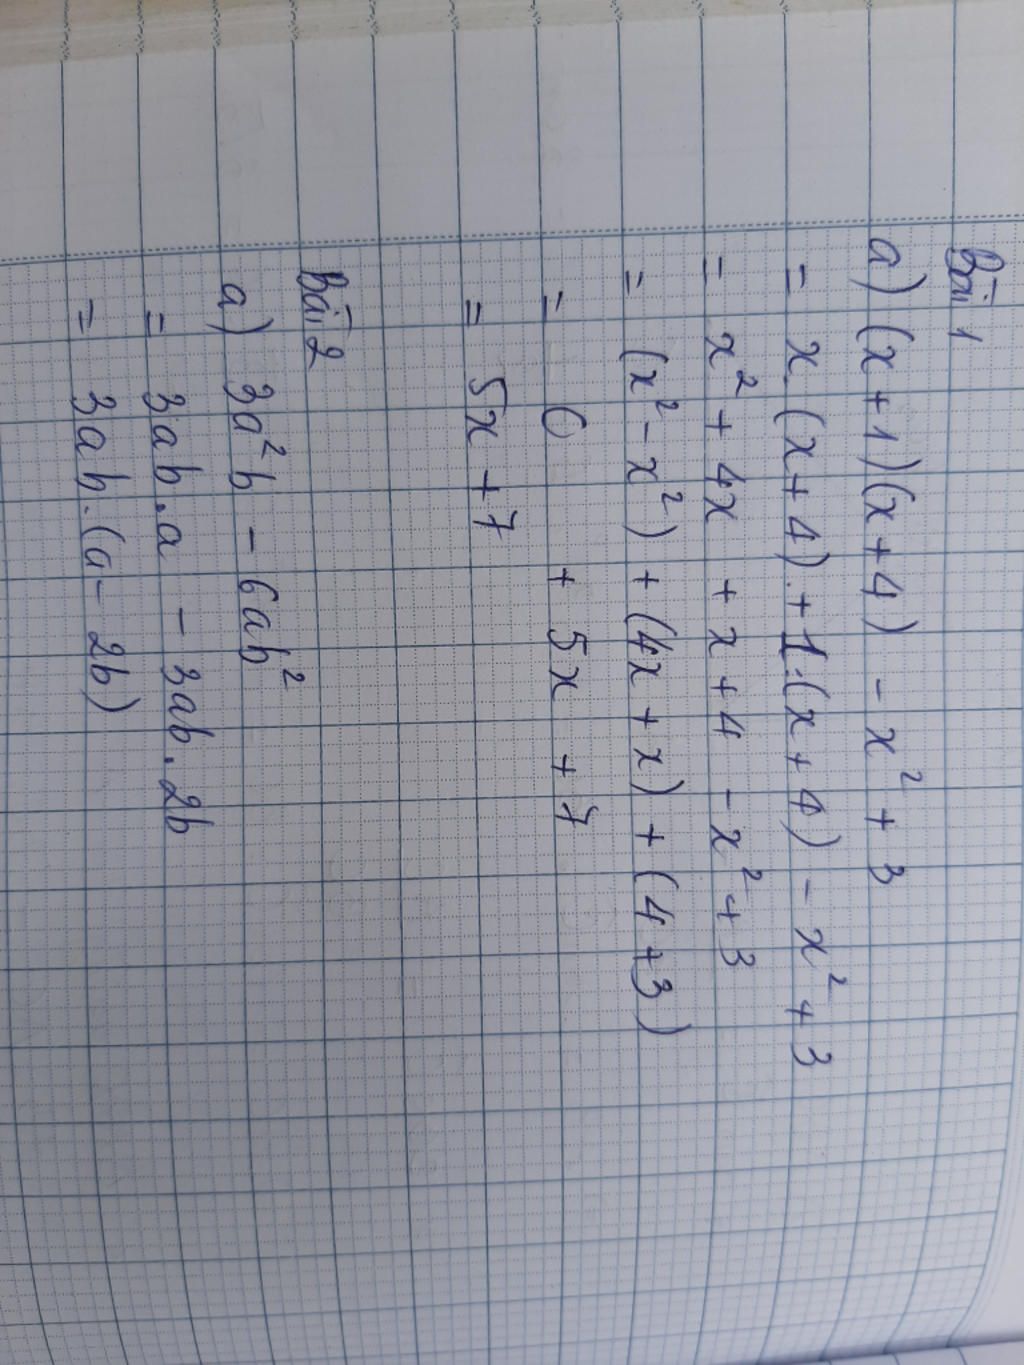 Bài 1
a) (x + 1)(x + 4) - x² + 3
= x.(x + 4). + 1.(x + 4) - x² + 3
= x² + 4x + x + 4 - x² + 3
= (x² - x²) + (4x + x) + (4 + 3)
= 0 + 5x + 7
= 5x + 7
Bài 2
a) 3a²b - 6ab²
= 3ab.a - 3ab.2b
= 3ab.(a - 2b)